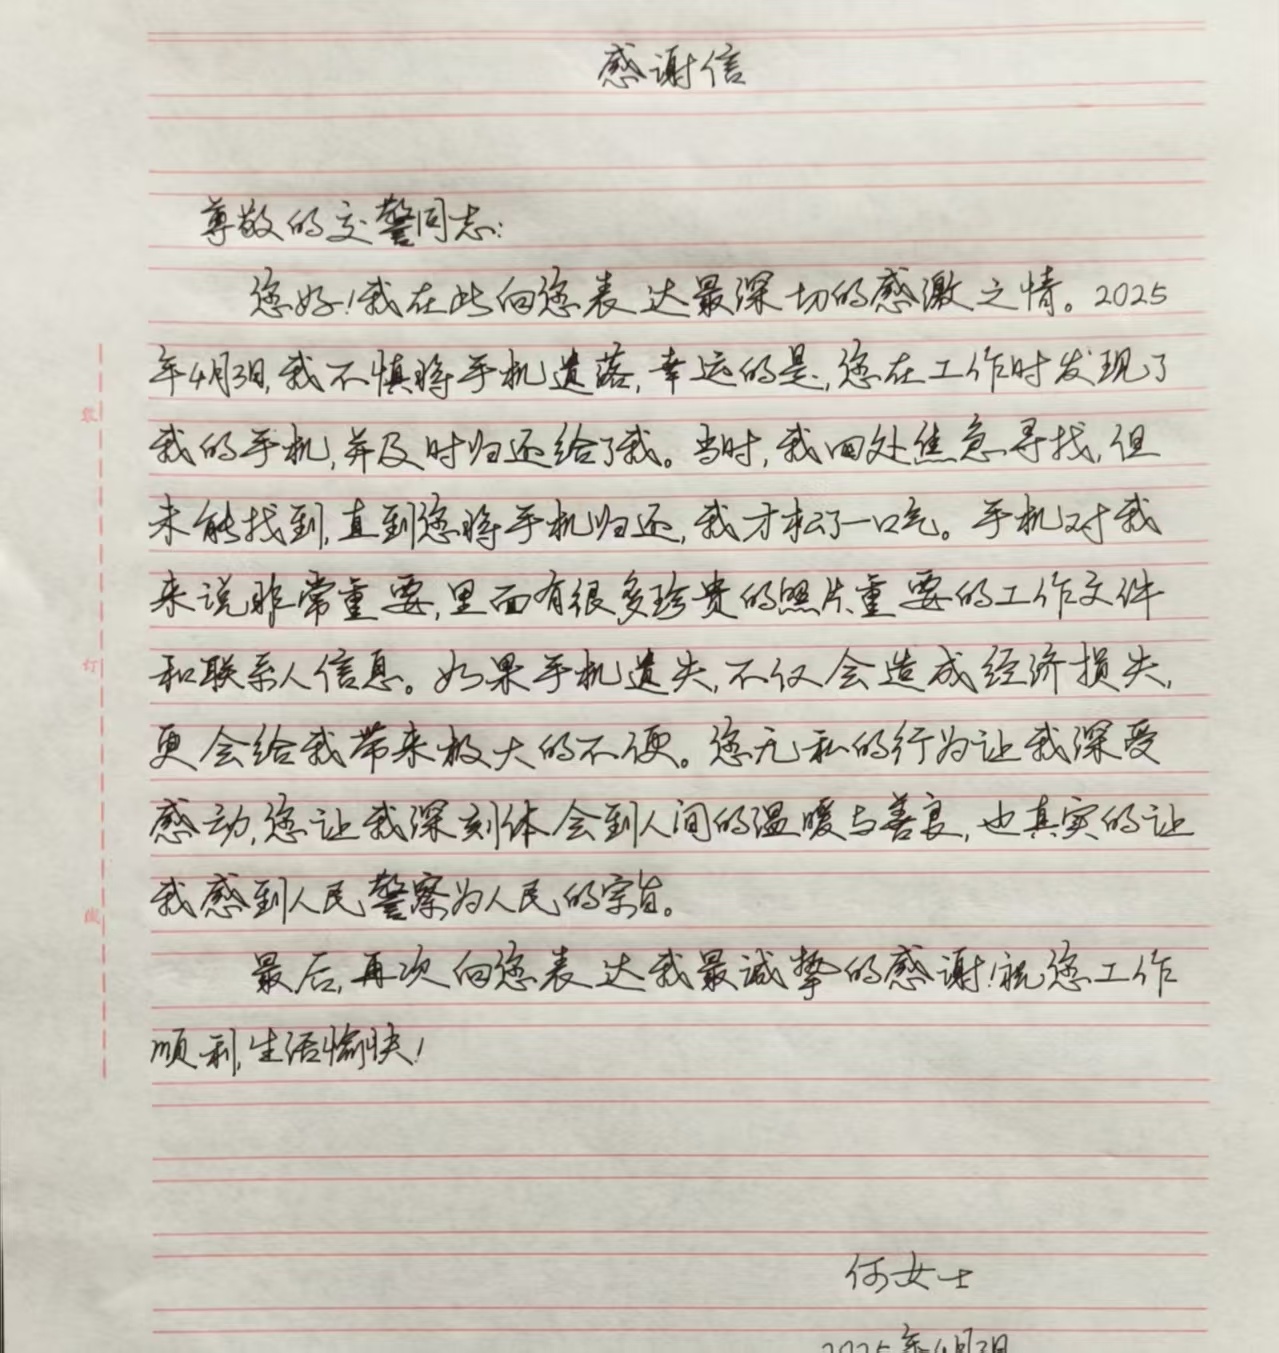 感谢信
尊敬的交警同志:
您好!我在此向您表达最深切的感激之情。2025
年4月3日,我不慎将手机遗落,幸运的是,您在工作时发现了
我的手机,并及时归还给了我。当时,我四处焦急寻找,但
未能找到,直到您将手机归还,我才松了一口气。手机对我
来说非常重要,里面有很多珍贵的照片、重要的工作文件
和联系人信息。如果手机遗失,不仅会造成经济损失,
更会给我带来极大的不便。您无私的行为让我深受
感动,您让我深刻体会到人间的温暖与善良,也真实的让
我感到人民警察为人民的宗旨。
最后,再次向您表达我最诚挚的感谢!祝您工作
顺利,生活愉快!
何女士
2025年4月3日
装
订
线